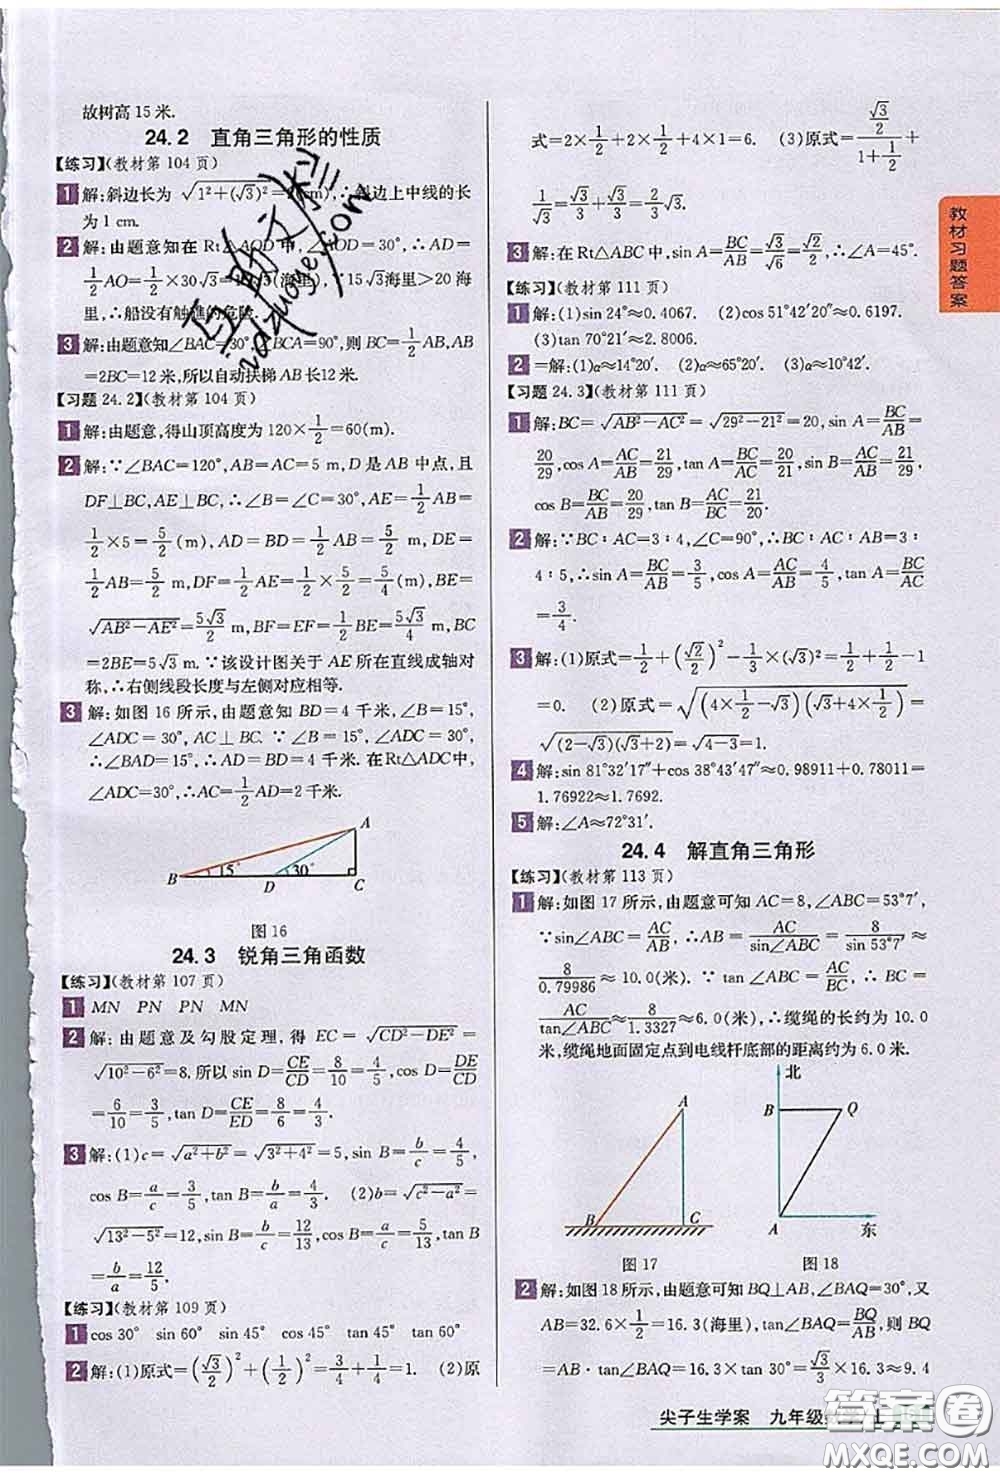 故树高 15 米.
24.2 直角三角形的性质
【练习】(教材第 104 页)
1 解:斜边长为 √(1²+(√3)²)=2(cm),∴斜边上中线的长
为 1 cm.
2 解:由题意知在 Rt△AOD 中,∠AOD=30°,∴AD=
1/2 AO=1/2×30√3=15√3(海里),∵15√3 海里>20
海里,∴船没有触礁的危险.
3 解:由题意知∠BAC=30°,∠BCA=90°,则 BC=1/2 AB,
AB=2BC=12 米,所以自动扶梯 AB 长12米.
【习题 24.2】(教材第 104 页)
1 解:由题意,得山顶高度为 120×1/2=60(m).
2 解:∵∠BAC=120°,AB=AC=5 m,D 是 AB 中点,且
DF⊥BC,AE⊥BC,∴∠B=∠C=30°,AE=1/2 AB=
1/2×5=5/2(m),AD=BD=1/2 AB=5/2 m,DE=
1/2 AB=5/2 m,DF=1/2 AE=1/2×5/2=5/4(m),BE=
√(AB²−AE²)=5√3/2 m,BF=EF=1/2 BE=5√3/4 m,BC
=2BE=5√3 m.∵该设计图关于 AE 所在直线成轴对
称,∴右侧线段长度与左侧对应相等.
3 解:如图 16 所示,由题意知 BD=4 千米,∠B=15°,
∠ADC=30°,AC⊥BC.∵∠B=15°,∠ADC=30°,
∴∠BAD=15°,∴BD=AD=4 千米.在Rt△ADC中,
∠ADC=30°,∴AC=1/2 AD=2 千米.
A
B 15° D 30° C
图 16
24.3 锐角三角函数
【练习】(教材第 107 页)
1 MN PN PN MN
2 解:由题意及勾股定理,得 EC=√(CD²−DE²)=
√(10²−6²)=8.所以 sin D=CE/CD=8/10=4/5,cos D=DE/CD=
6/10=3/5,tan D=CE/ED=8/6=4/3.
3 解:(1)c=√(a²+b²)=√(3²+4²)=5,sin B=b/c=4/5,
cos B=a/c=3/5,tan B=b/a=4/3. (2)b=√(c²−a²)=
√(13²−5²)=12,sin B=b/c=12/13,cos B=a/c=5/13,tan B
=b/a=12/5.
【练习】(教材第 109 页)
1 cos 30° sin 60° sin 45° cos 45° tan 45° tan 60°
2 解:(1)原式=(√3/2)²+(1/2)²=3/4+1/4=1. (2)原
式=2×1/2+2×1/2+4×1/2=4. (3)原式=(√3/2)/(1+1/2)+
1/√3=√3/3+√3/3=2/3√3.
3 解:在 Rt△ABC 中,sin A=BC/AB=√3/√6=√2/2,∴∠A=45°.
【练习】(教材第 111 页)
1 解:(1)sin 24°≈0.4067. (2)cos 51°42′20″≈0.6197.
(3)tan 70°21′≈2.8006.
2 =解:(1)α≈14°20′. (2)α≈65°20′. (3)α≈10°42′.
【习题 24.3】(教材第 111 页)
1 解:BC=√(AB²−AC²)=√(29²−21²)=20,sin A=BC/AB=
20/29,cos A=AC/AB=21/29,tan A=BC/AC=20/21,sin B=AC/AB=21/29,
cos B=BC/AB=20/29,tan B=AC/BC=21/20.
2 解:∵BC∶AC=3∶4,∠C=90°,∴BC∶AC∶AB=3∶
4∶5,∴sin A=BC/AB=3/5,cos A=AC/AB=4/5,tan A=BC/AC
=3/4.
3 解:(1)原式=1/2+(√2/2)²−1/3×(√3)²=1/2+1/2−1
=0. (2)原式=√((4×1/2−√3)(4×1/2×√3/2×... 
√((2−√3)(√3+2))=1.
4 解:sin 81°32′17″+cos 38°43′47″≈0.98911+0.78011=
1.76922≈1.7692.
5 解:∠A≈72°31′.
24.4 解直角三角形
【练习】(教材第 113 页)
1 解:如图 17 所示,由题意可知 AC=8,∠ABC=53°7′,
∵sin∠ABC=AC/AB,∴AB=AC/sin∠ABC=8/sin 53°7′≈
8/0.79986≈10.0(米).∵tan ∠ABC=AC/BC,∴BC=
AC/tan∠ABC≈8/1.3327≈6.0(米),∴缆绳的长约为 10.0
米,缆绳地面固定点到电线杆底部的距离约为 6.0 米.
A
B C
图 17
北
B Q
A 东
图 18
2 解:如图 18 所示,由题意可知 BQ⊥AB,∠BAQ=30°,又
AB=32.6×1/2=16.3(海里),tan∠BAQ=BQ/AB,则 BQ
=AB·tan∠BAQ=16.3×tan 30°=16.3×√3/3≈9.4
教材习题答案
尖子生学案 九年级
答案圈
MXQE.COM